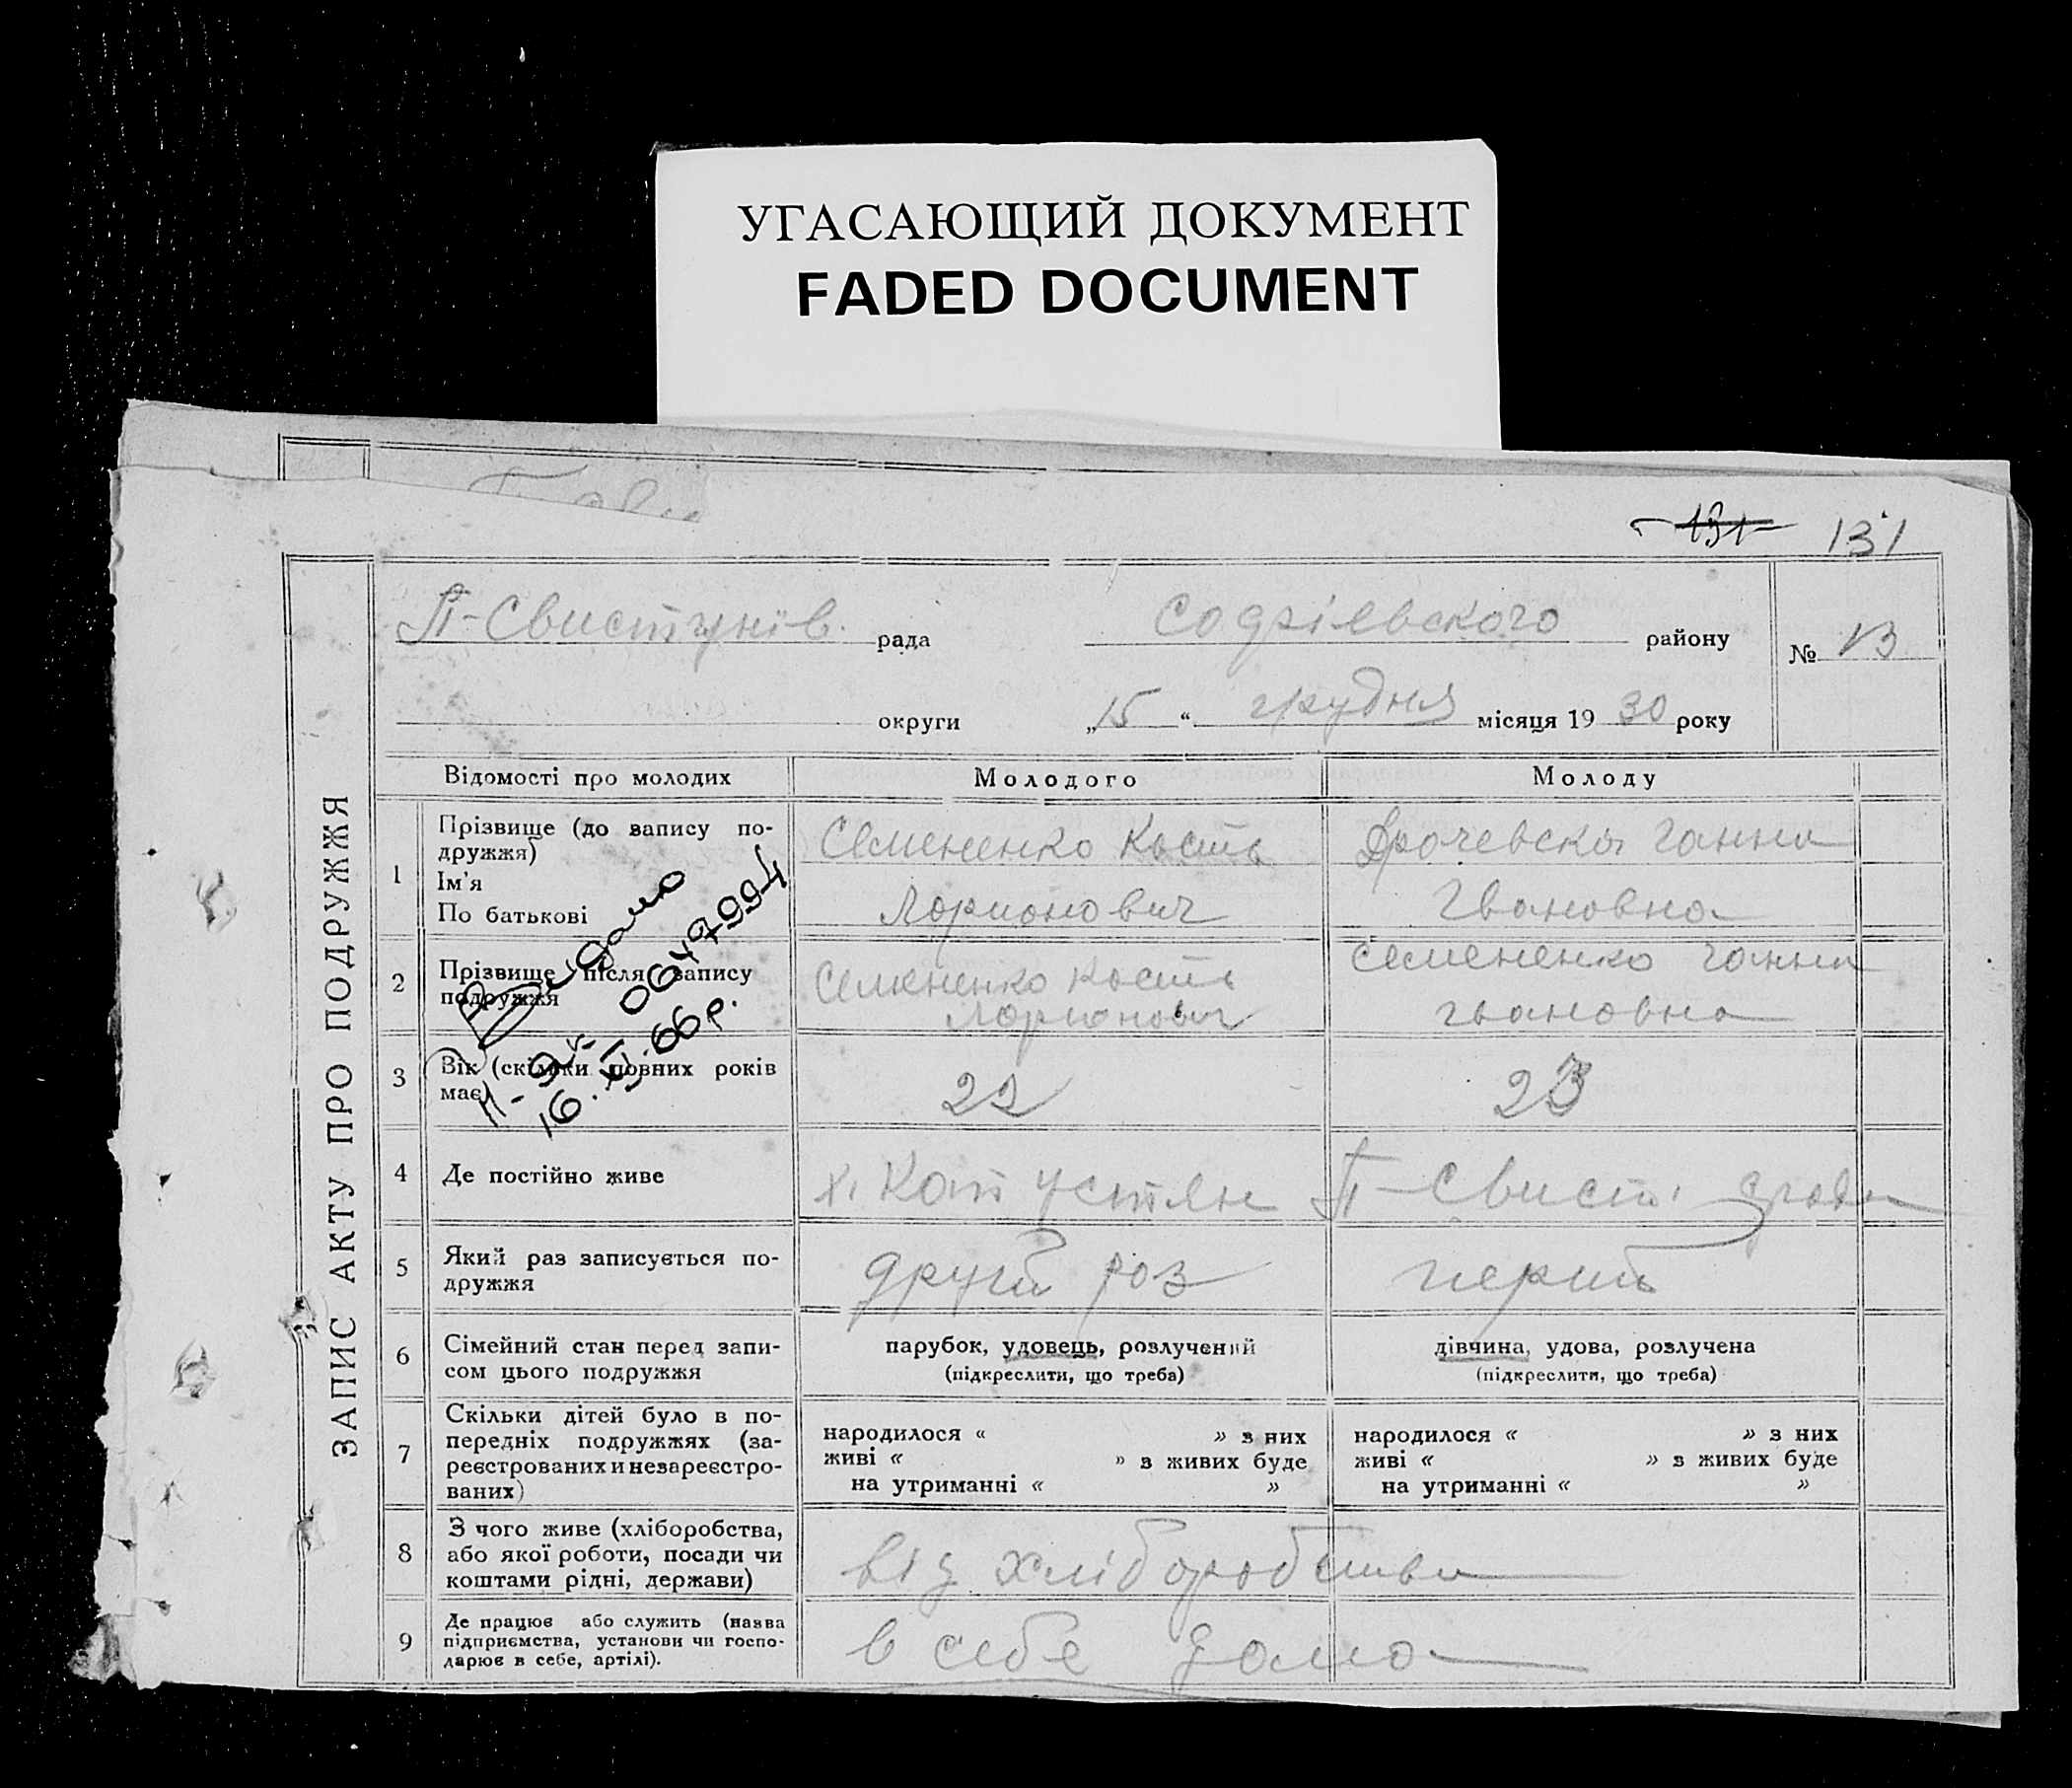 УГАСАЮЩИЙ ДОКУМЕНТ
FADED DOCUMENT
131 131
ЗАПИС АКТУ ПРО ПОДРУЖЖЯ
П-Свистунів. рада Содріявского району № 13
округи „15“ грудня місяця 1930 року
Відомості про молодих Молодого Молоду
1 Прізвище (до запису по-
дружжя)
Ім'я
По батькові
Семененко Кость
Ларионович
Драчевска Ганна
Івановна
2 Прізвище після запису
подружжя
Семененко Кость
Ларионович
Семененко Ганна
Івановна
Видано
0647994
16. XI. 66 р.
3 Вік (скільки повних років
має)
22
23
4 Де постійно живе
х. Капустян
П-Свист.
5 Який раз записується по-
дружжя
другий раз
перший
6 Сімейний стан перед запи-
сом цього подружжя
парубок, удовець, розлучений
(підкреслити, що треба)
дівчина, удова, розлучена
(підкреслити, що треба)
7 Скільки дітей було в по-
передніх подружжях (за-
реєстрованих и незареєстро-
ваних)
народилося « » з них
живі « » з живих буде
на утриманні « »
народилося « » з них
живі « » з живих буде
на утриманні « »
8 З чого живе (хліборобства,
або якої роботи, посади чи
коштами рідні, держави)
від хліборобства
9 Де працює або служить (назва
підприємства, установи чи госпо-
дарює в себе, артілі).
в себе дома